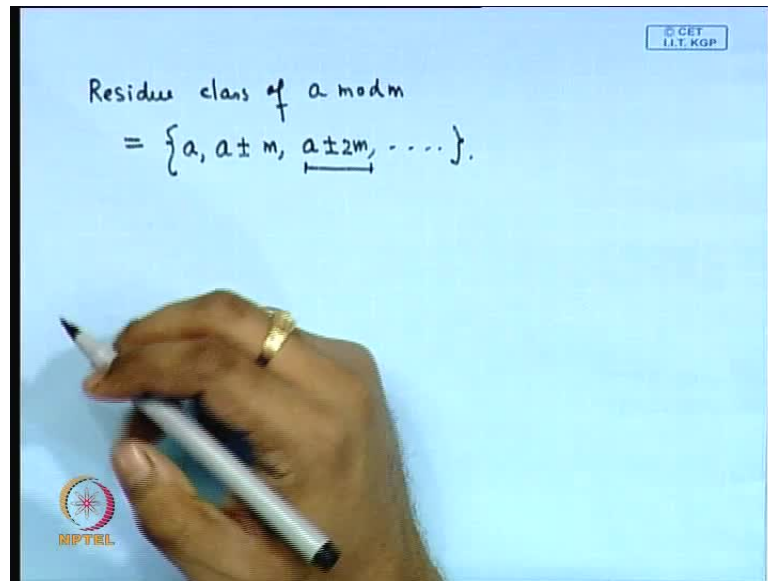 © CET
I.I.T. KGP
Residue class of a mod m
= {a, a ± m, a ± 2m, ....}.
NPTEL